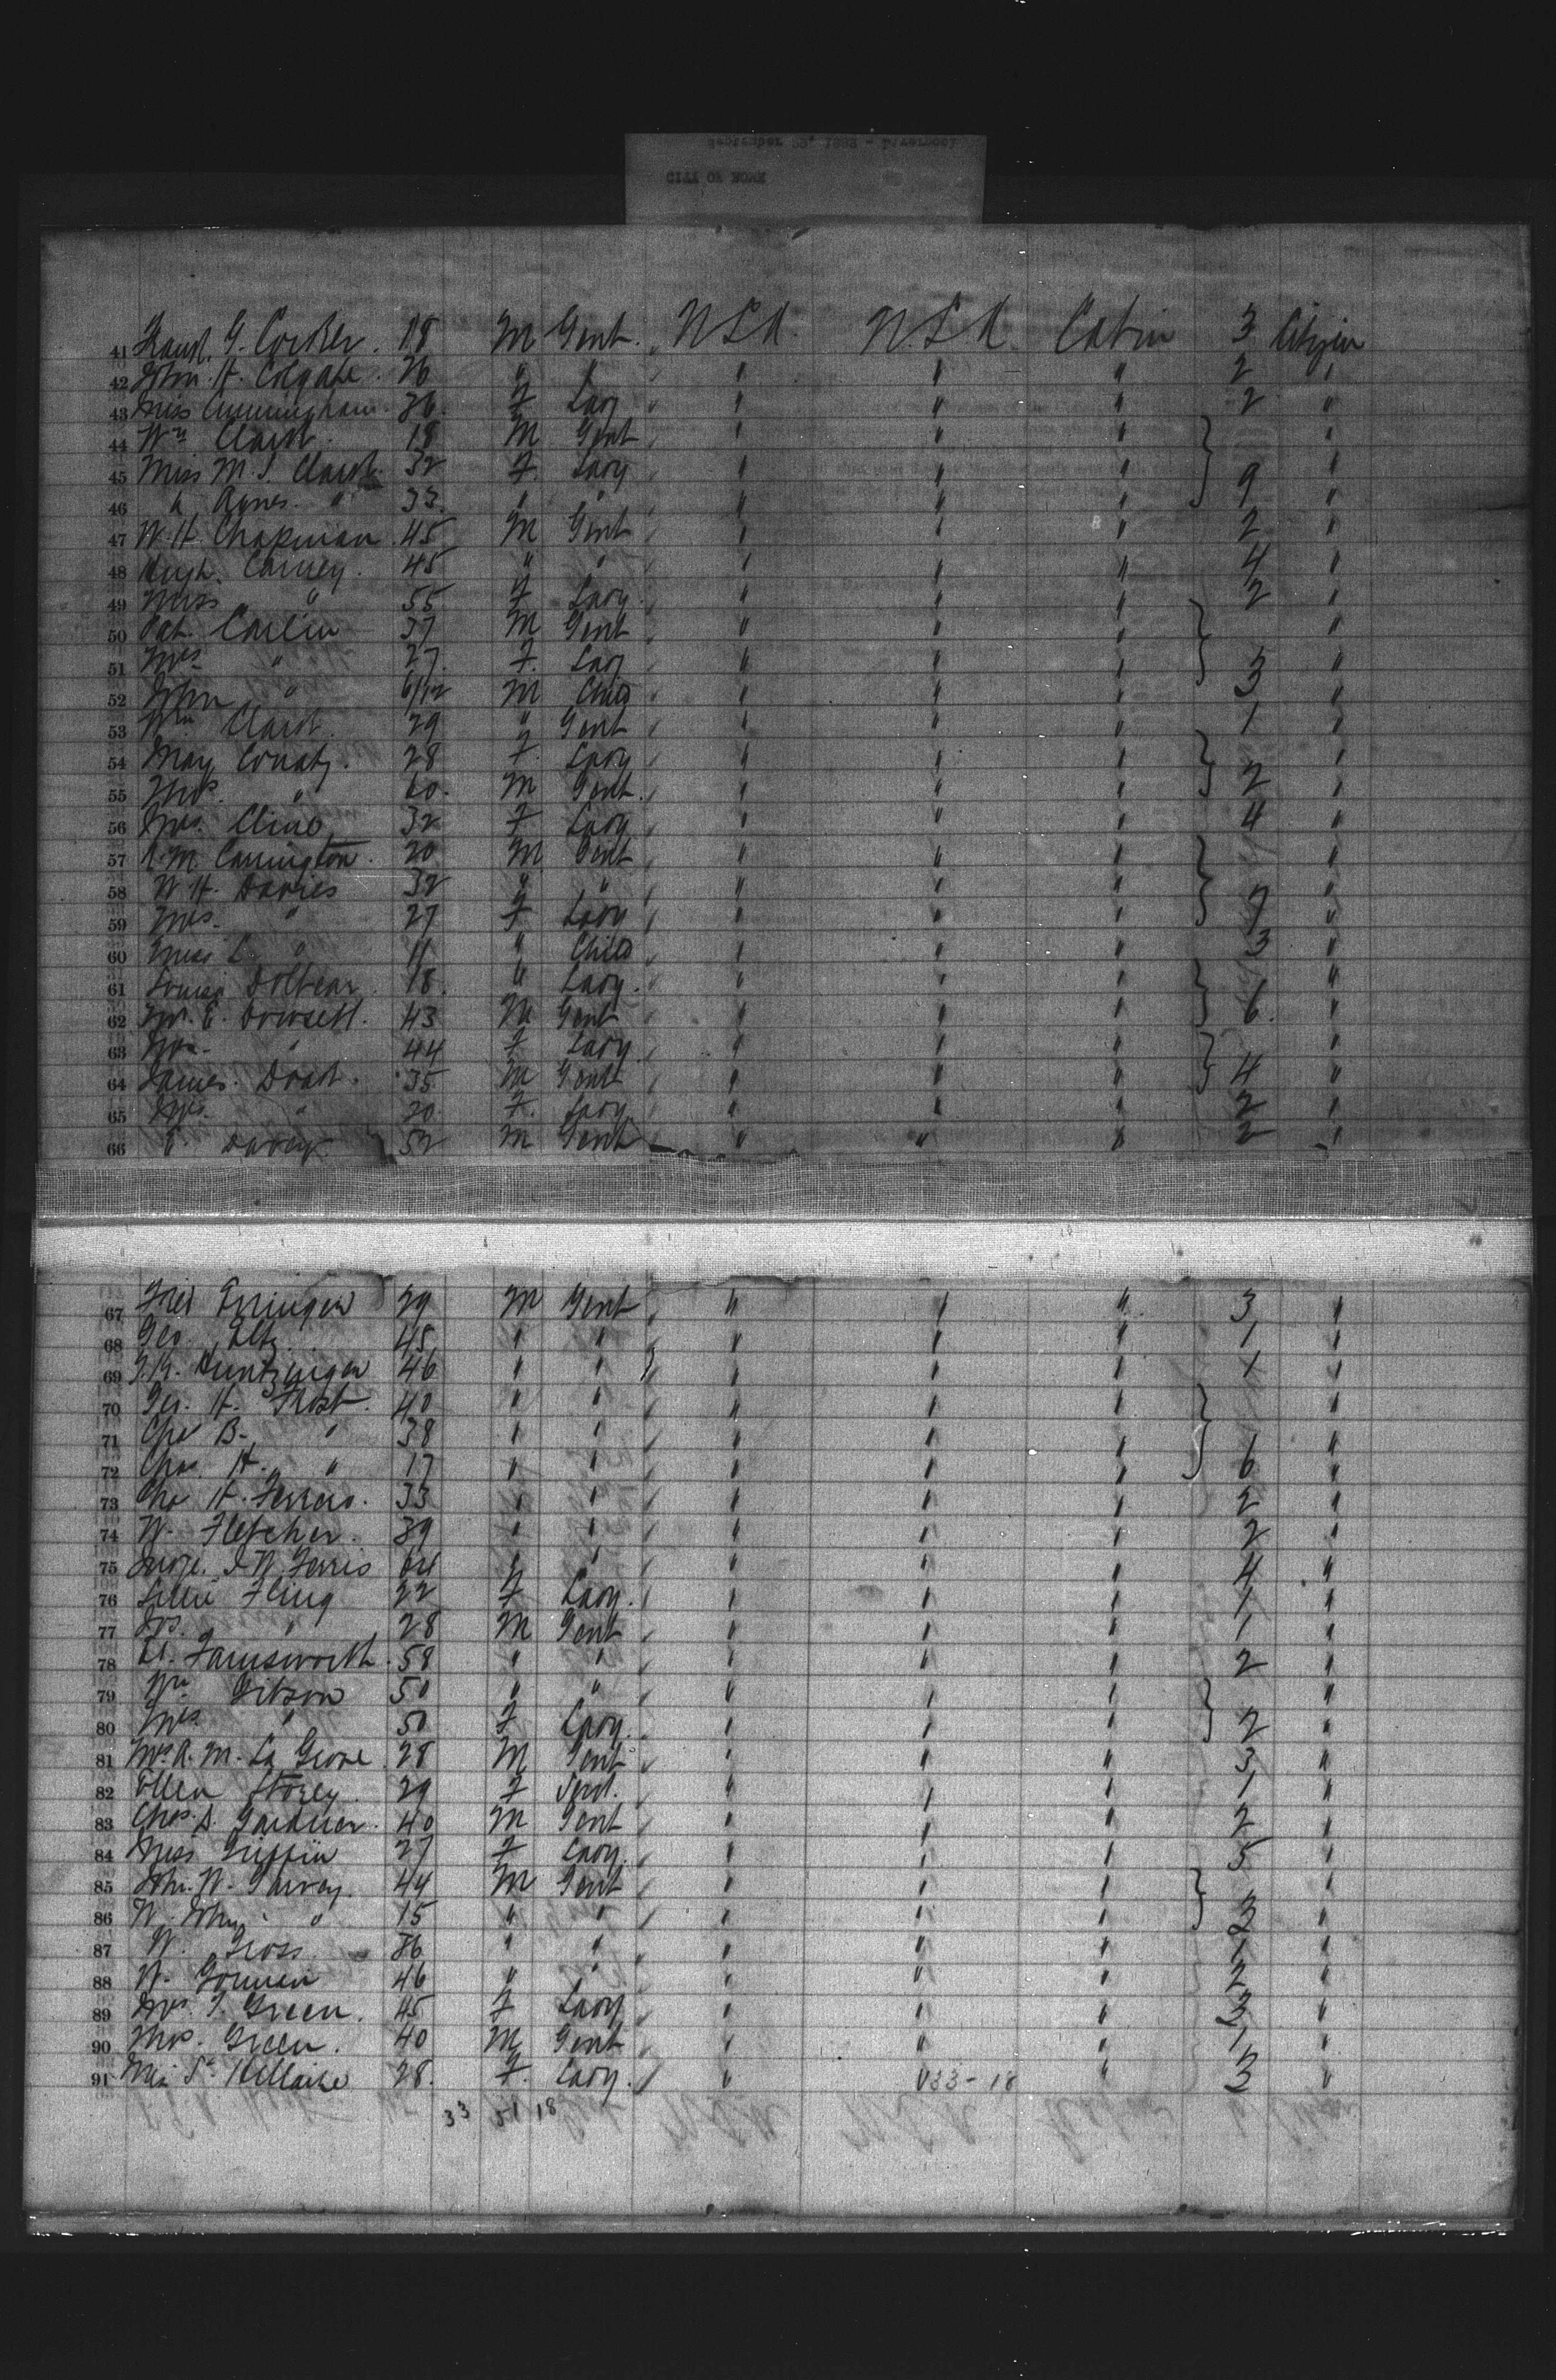 September 22, 1888 - Liverpool
CITY OF ROME
41 G. Corker. 18 M Gent. U.S.A. U.S.A. Cabin 3 Citizen
42 John. H. Colgate. 26 " " " " " 2 "
43 Miss Cunningham. 36. F Lady " " " 2 "
44 Wm Clark. 18 M Gent " " " "
45 Miss M. J. Clark. 32 F. Lady " " " 9 "
46 " Agnes. " 33. " " " " " "
47 W. H. Chapman. 45 M Gent " " " 2 "
48 Hugh. Carney. 45 " " " " " 4 "
49 Miss " 55 F Lady. " " " 2 "
50 Pat. Carlin 37 M Gent " " " "
51 Mrs " 27. F. Lady " " " 3 "
52 John " 6/12 M Child " " " "
53 Wm Clark. 29 " Gent " " " 1 "
54 May Conaty. 28 F. Lady " " " "
55 Thos. " 60. M Gent. " " " 2 "
56 Mrs. Cline 32 F Lady " " " 4 "
57 M. Carrington. 20 M Gent " " " "
58 W. H. Davies 32 " " " " " "
59 Mrs. " 27 F Lady " " " 7 "
60 Miss " 11 " Child " " " 3 "
61 Louisa Dolbear. 18. " Lady. " " " "
62 E. Dowsett. 43 M Gent " " " 6. "
63 Mrs. " 44 F Lady " " " "
64 James. 35 M Gent " " " 4 "
65 Mrs. " 20 F. Lady " " " 2 "
66 Davey 52 M Gent " " " 2 "
67 Fred 29 M Gent " " " 3 "
68 Geo. 45 " " " " " 1 "
69 Huntzinger 46 " " " " " 1 "
70 Geo. H. Frost. 40 " " " " " "
71 B. " 38 " " " " " "
72 Chas. H. " 17 " " " " " 6 "
73 H. Ferrers. 33 " " " " " 2 "
74 W. Fletcher. 39 " " " " " 2 "
75 Judge. I. W. Ferris 64 " " " " " 4 "
76 Lillie Fling 22 F Lady. " " " 1 "
77 Jos. " 28 M Gent " " " 1 "
78 Farnsworth. 58 " " " " " 2 "
79 Wm Gibson 50 " " " " " "
80 Mrs " 50 F Lady. " " " 2 "
81 R. M. La Grove 28 M Gent " " " 3 "
82 Ellen Storey. 29 F Servt. " " " 1 "
83 Chas. S. Gardner. 40 M Gent " " " 2 "
84 Miss Griffin 27 F Lady. " " " 5 "
85 Jno. W. Garvey. 44 M Gent " " " "
86 W. John " 15 " " " " " 3 "
87 W. Gross. 36 " " " " " 1 "
88 W. Gorman 46 " " " " " 2 "
89 Mrs. J. Green. 45 F Lady " " " 3 "
90 Thos. Green. 40 M Gent " " " 1 "
91 St. Hillaire 28. F. Lady. " " " 3 "
33-18
33 51 18